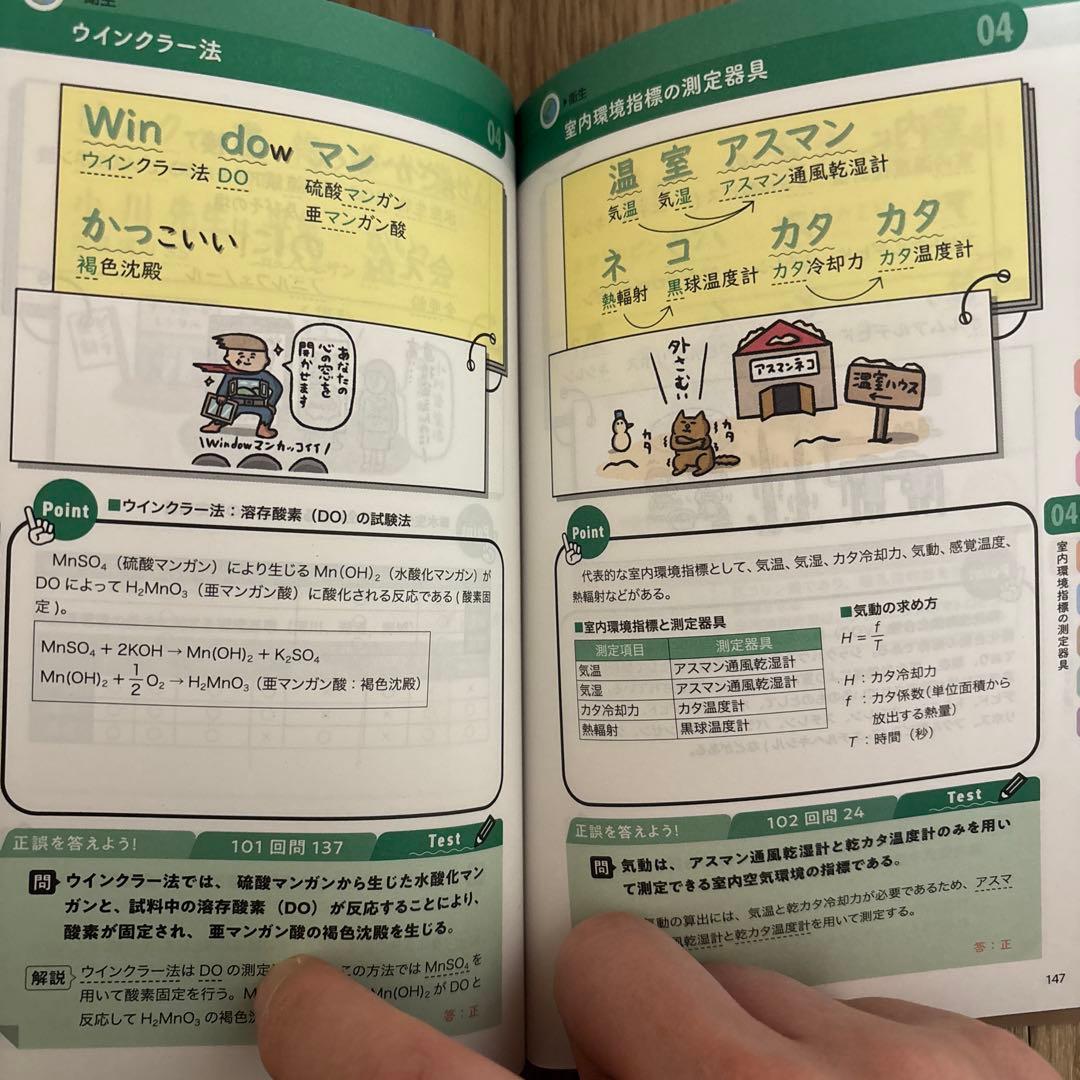 衛生
ウインクラー法
04
Win dow マン
ウインクラー法 DO 硫酸マンガン
亜マンガン酸
かっこいい
褐色沈殿
あなたの
心の窓を
開かせます
\Windowマンカッコイイ/
Point
■ウインクラー法：溶存酸素（DO）の試験法
MnSO₄（硫酸マンガン）により生じる Mn(OH)₂（水酸化マンガン）が
DO によって H₂MnO₃（亜マンガン酸）に酸化される反応である（酸素固
定）。
MnSO₄ + 2KOH → Mn(OH)₂ + K₂SO₄
Mn(OH)₂ + 1/2 O₂ → H₂MnO₃（亜マンガン酸：褐色沈殿）
正誤を答えよう！ 101 回問 137 Test
問 ウインクラー法では、硫酸マンガンから生じた水酸化マン
ガンと、試料中の溶存酸素（DO）が反応することにより、
酸素が固定され、亜マンガン酸の褐色沈殿を生じる。
解説 ウインクラー法は DO の測定 この方法では MnSO₄ を
用いて酸素固定を行う。 Mn(OH)₂ が DO と
反応して H₂MnO₃ の褐色
答：正
衛生
室内環境指標の測定器具
04
温 室 アスマン
気温 気湿 アスマン通風乾湿計
ネ コ カタ カタ
熱輻射 黒球温度計 カタ冷却力 カタ温度計
外さむい
アスマンネコ
温室ハウス
←
カタ
カタ
Point
代表的な室内環境指標として、気温、気湿、カタ冷却力、気動、感覚温度、
熱輻射などがある。
■室内環境指標と測定器具
測定項目 測定器具
気温 アスマン通風乾湿計
気湿 アスマン通風乾湿計
カタ冷却力 カタ温度計
熱輻射 黒球温度計
■気動の求め方
H = f/T
H：カタ冷却力
f：カタ係数（単位面積から
放出する熱量）
T：時間（秒）
正誤を答えよう！ 102 回問 24 Test
問 気動は、アスマン通風乾湿計と乾カタ温度計のみを用い
て測定できる室内空気環境の指標である。
気動の算出には、気温と乾カタ冷却力が必要であるため、アスマ
風乾湿計と乾カタ温度計を用いて測定する。
答：正
04
室内環境指標の測定器具
147